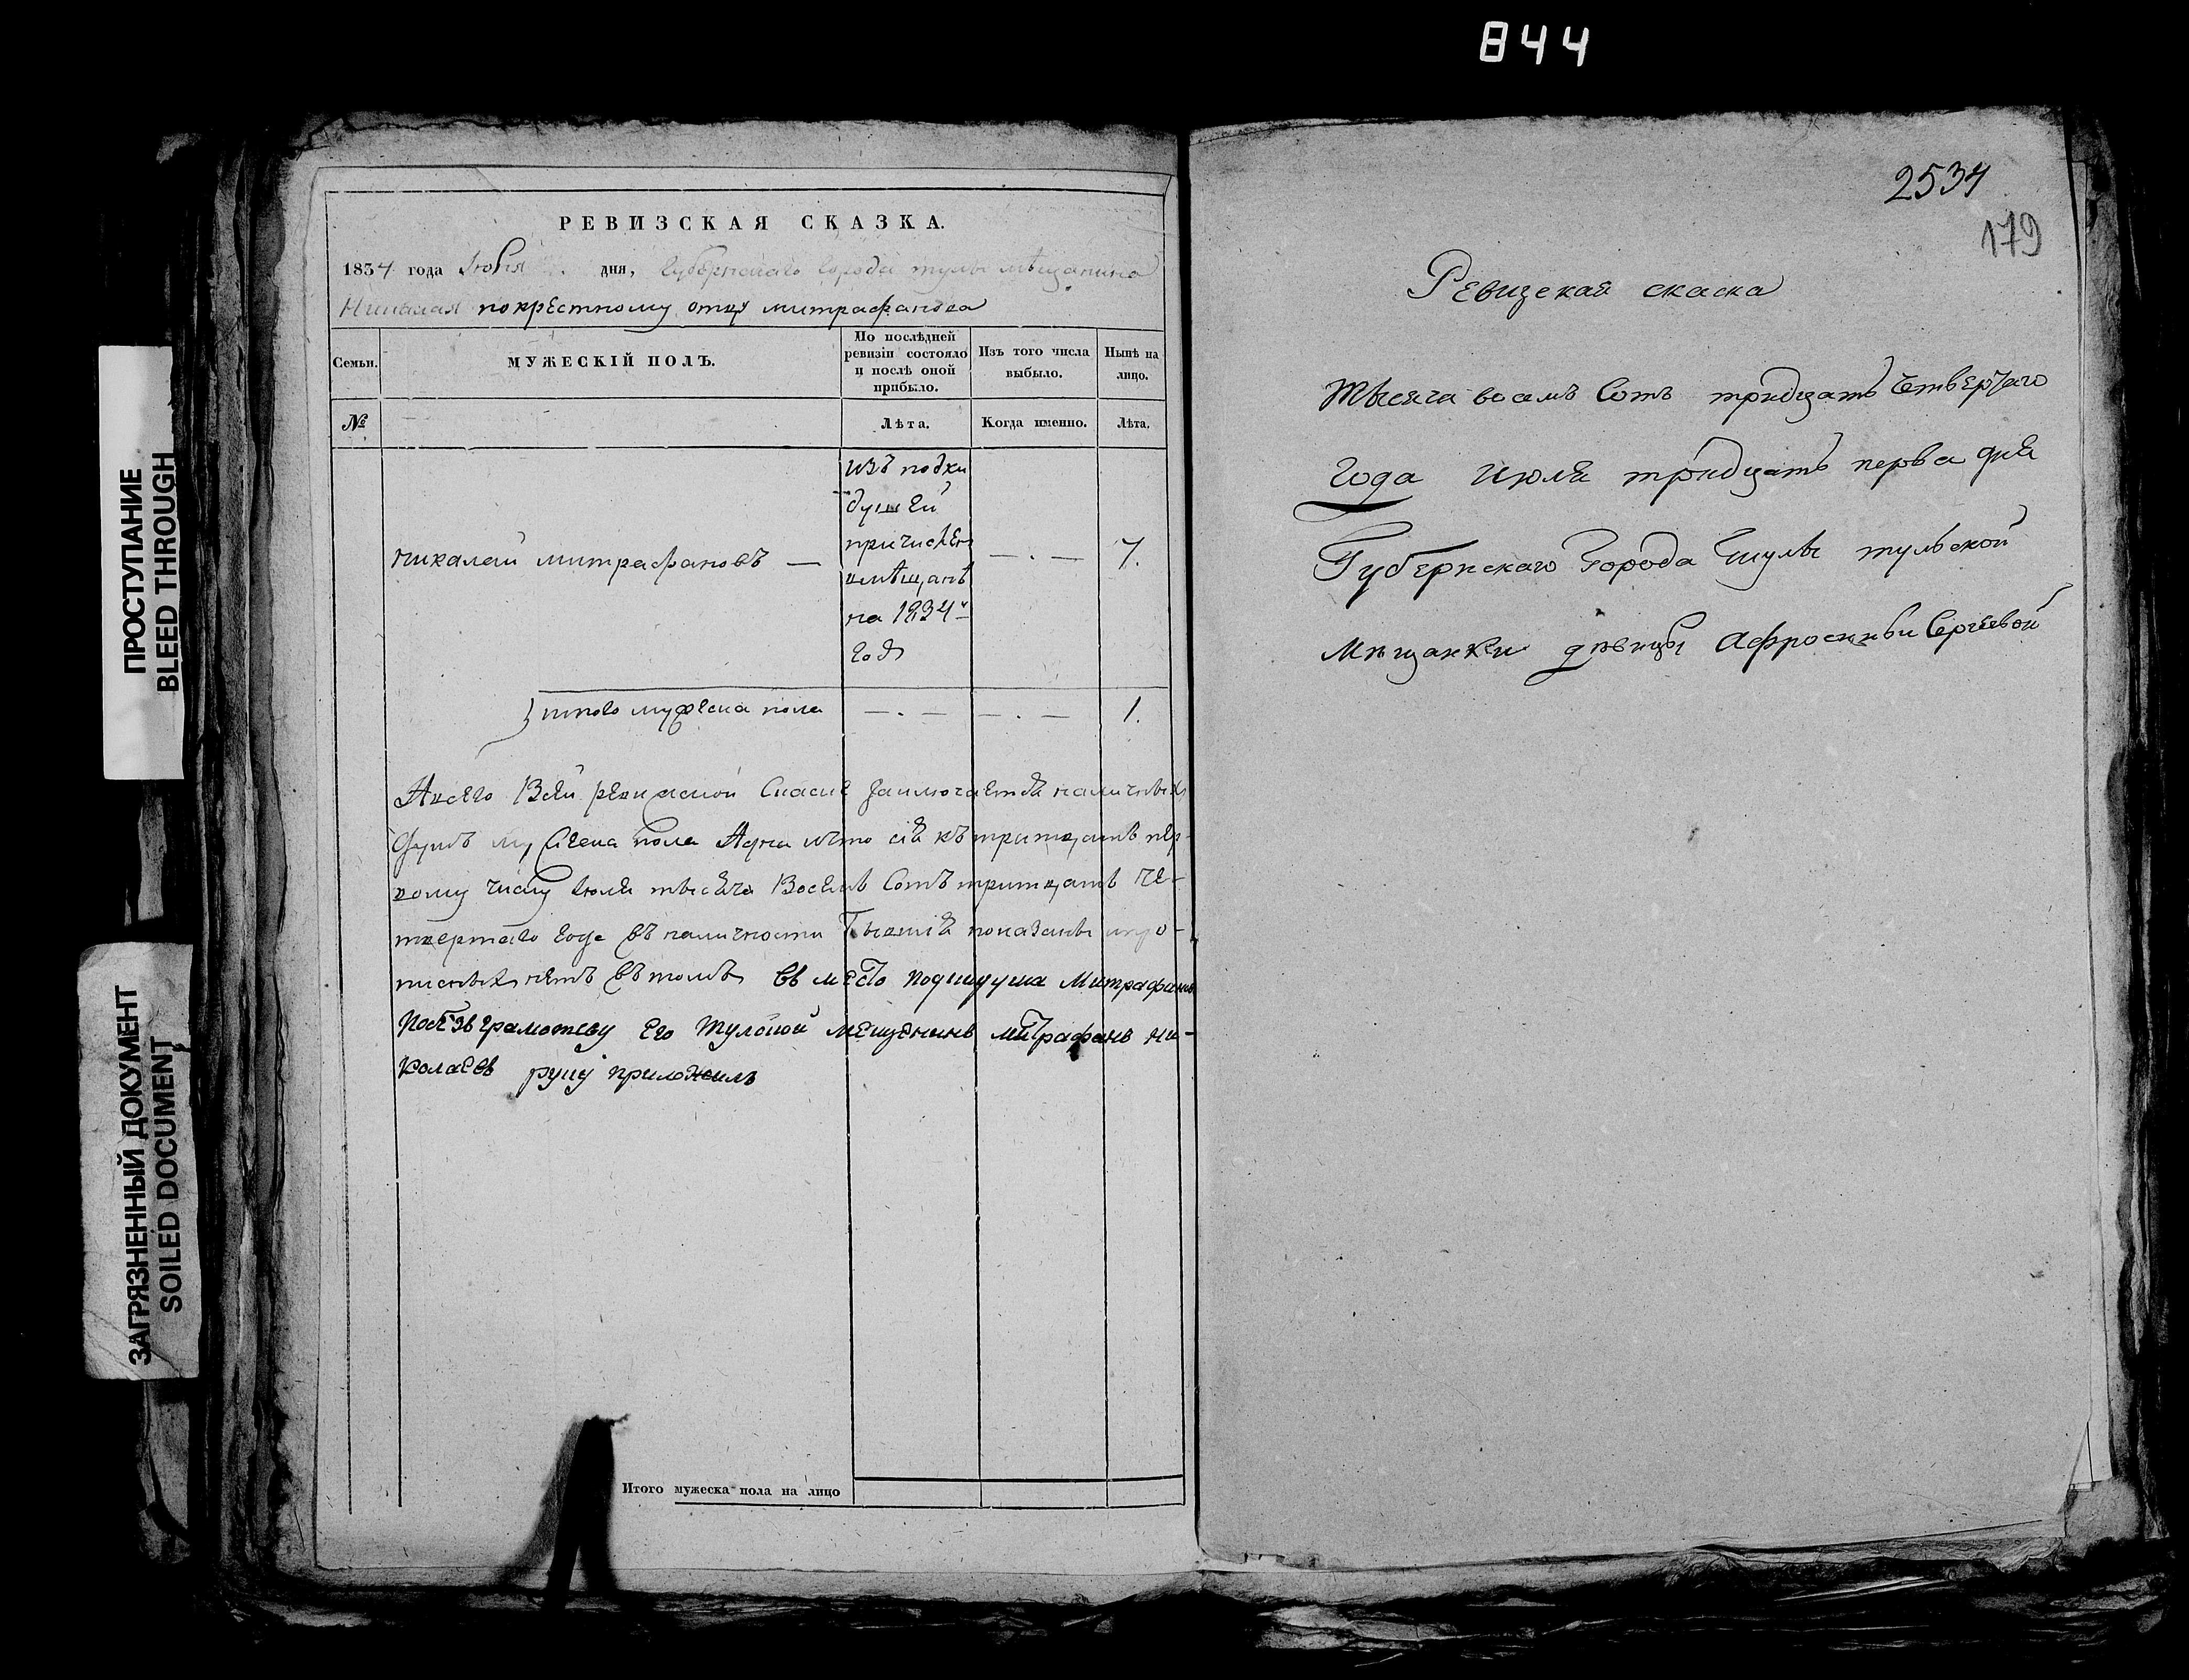 844
ПРОСТУПАНИЕ
BLEED THROUGH
ЗАГРЯЗНЕННЫЙ ДОКУМЕНТ
SOILED DOCUMENT
РЕВИЗСКАЯ СКАЗКА.
1834 года Июля дня, Губернскаго города тулы мѣщанина
Николая покрестному отцу митрафанова
Семьи.
МУЖЕСКІЙ ПОЛЪ.
По послѣдней
ревизіи состояло
и послѣ оной
прибыло.
Изъ того числа
выбыло.
Нынѣ на
лицо.
№
Лѣта.
Когда именно.
Лѣта.
изъ подки
душей
причислен
вмѣщанѣ
на 1834й
годъ
никалай митрафановъ — — . — 7.
итого мужеска пола — . — — . — 1.
Авсего Всей ревизской Скаске Заключается наличныхъ
Душъ мужеска пола Адна что сія къ тритцать пер-
вому числу Июля тысяча Восемь Сотъ тритцать че-
твертаго года въ наличности Бывшія показаны и про-
писныхъ нетъ въ томъ въ место подкидуша Митрафанова
побезъграмотству его Тулской мещенинъ митрафанъ ни-
колаевъ руку приложилъ
Итого мужеска пола на лицо
2534
179
Ревизская скаска
Тысяча восемъ Сотъ тридцать Четвертаго
года июля тридцать перва дня
Губернскаго Города Тулы тульской
мѣщанки дѣвицы Афросиньи Сергѣевой